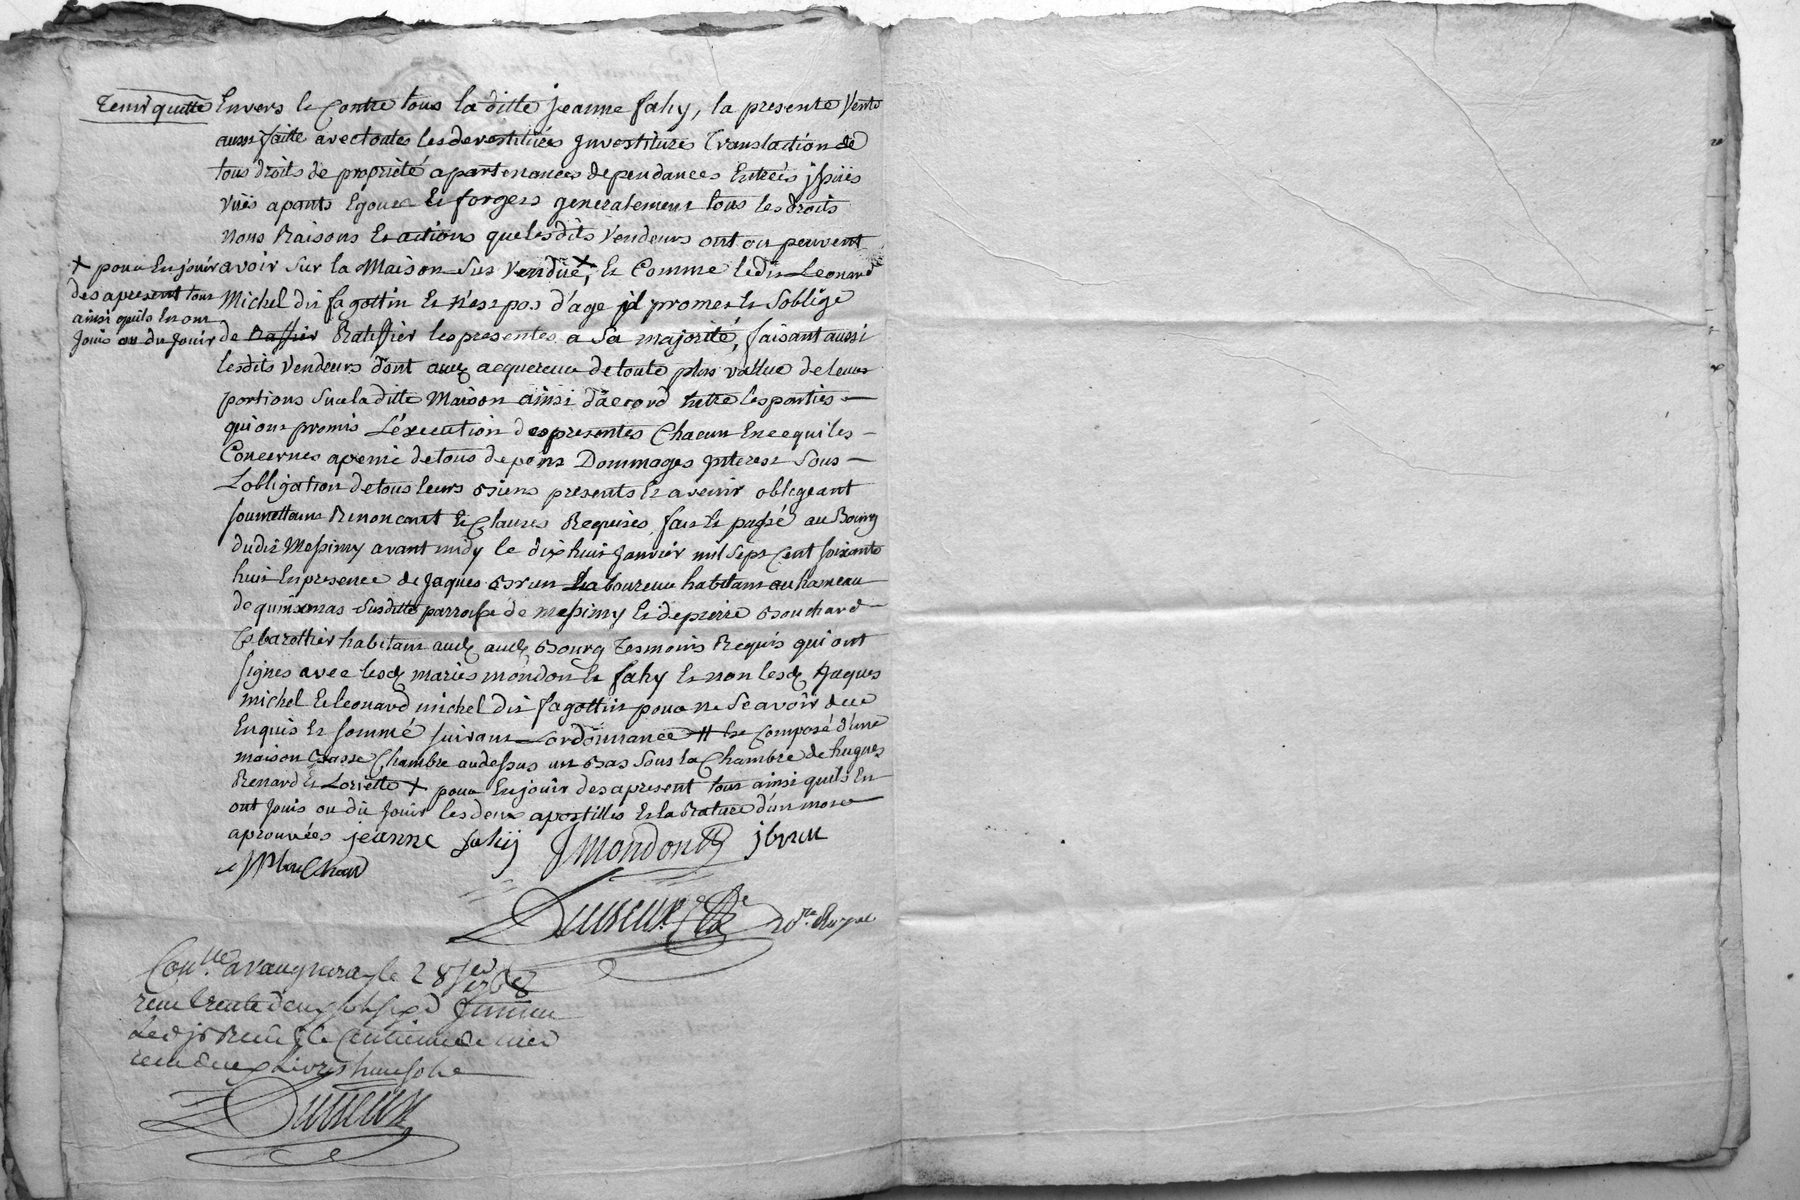 tenir quitte Envers et Contre tous la ditte jeanne fahy, la presente Vente
aussi faitte avec toutes les devestitües Jnvestitures translation de
tous droits de proprieté apartenances dependances Entrées jssües
vües apants Egouts et forgets generalement tous les droits
noms Raisons Et actions que lesdits Vendeurs ont ou peuvent
avoir sur la Maison sus Vendüe,+ et Comme ledit Leonard
Michel dit fagottin Et n'est pas d'age jl promet et s'oblige
de Ratiffier les presentes a sa majorité, faisant aussi
lesdits Vendeurs dont audt acquereur de toute plus vallue de leurs
portions sur la ditte Maison ainsi d'acord Entre les parties
qui ont promis L'éxecution des presentes Chacun En ce qui les
Concernes a peine de tous depens Dommages jnterest sous
L'obligation de tous leurs Biens presents Et avenir obligeant
soumettant Renoncant Et Clauses Requises, fait Et passé au Bourg
dudit Messimy avant midy le dix huit Janvier mil sept Cent soixante
huit En presence de Jaques Brun Laboureur habitant au hameau
de quinsonas susditte parroisse de Messimy Et de pierre Bouchard
Cabarettier habitant audt Bourg Tesmoins Requis qui ont
signés avec lesdt mariés mondon Et fahy Et non lesdt Jaques
michel Et leonard michel dit fagottin pour ne sçavoir de ce
Enquis Et sommé suivant Lordonnance # Et Composé d'une
maison Basse Chambre au dessus un Bas sous la Chambre de hugues
Renard Et Loriette + pour En joüir des apresent tout ainsi quils En
ont Joüis ou dü Joüir les deux apostilles Et la Rature d'un mot
aprouvées jeanne fahij JMondon jbrun
JP bouChard
Dusseux not.re Royal
+ pour En joüir
des apresent tout
ainsi quils En ont
Joüis ou du Joüir
Con.llé a vaugneray le 28 jer 1768
reçu trente deux
Led js Reçu le Centieme denier
reçu deux Livres huit sols
Dusseux